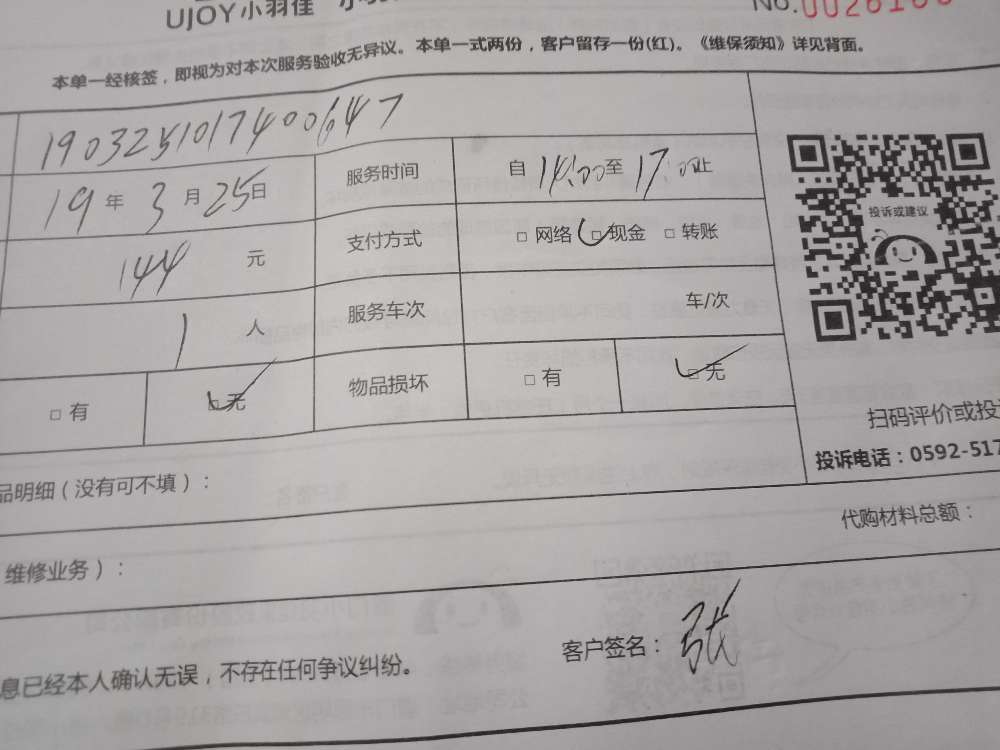 UJOY小羽佳
No.0026166
本单一经核签，即视为对本次服务验收无异议。本单一式两份，客户留存一份(红)。《维保须知》详见背面。
1903251017400647
19 年 3 月 25 日 服务时间 自 14:00 至 17:00 止
投诉或建议
144 元 支付方式 □ 网络 □ 现金 □ 转账
1 人 服务车次 车/次
□ 有 □ 无 物品损坏 □ 有 □ 无
扫码评价或投
投诉电话：0592-517
品明细（没有可不填）：
代购材料总额：
维修业务）：
客户签名：张
息已经本人确认无误，不存在任何争议纠纷。